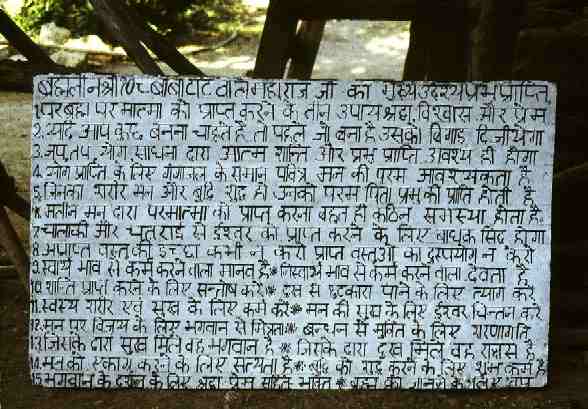 ब्रह्मलीन श्री १०८ बाबा टाट वाले महाराज जी का मुख्य उद्देश्य प्रभु प्राप्ति
1. परब्रह्म परमात्मा को प्राप्त करने के तीन उपाय श्रद्धा, विश्वास और प्रेम
2. यदि आप कुछ बनना चाहते है तो पहले जो बना है उसको बिगाड़ दिजीयेगा
3. जप, तप, योग, साधना द्वारा आत्म शान्ति और प्रभु प्राप्ति अवश्य ही होगी
4. योग प्राप्ति के लिए गंगाजल के समान पवित्र मन की परम आवश्यकता है
5. जिनका शरीर मन और बुद्धि शुद्ध हो उनको परम पिता प्रभु की प्राप्ति होती है
6. मलीन मन द्वारा परमात्मा को प्राप्त करना बहुत ही कठिन समस्या होता है
7. चालाकी और चतुराई से ईश्वर को प्राप्त करने के लिए बाधक सिद्ध होगा
8. अप्राप्त वस्तु की इच्छा कभी न करो प्राप्त वस्तुओ का दुरुपयोग न करो
9. स्वार्थ भाव से कर्म करने वाला मानव है * निस्वार्थ भाव से कर्म करने वाला देवता है
10. शान्ति प्राप्त करने के लिए सन्तोष करें * दुख से छुटकारा पाने के लिए त्याग करें
11. स्वस्थ शरीर एवं सुख के लिए कर्म करें * मन की सुख के लिए ईश्वर चिन्तन करें
12. मन पर विजय के लिए भगवान से मित्रता * बन्धन से मुक्ति के लिए शरणागति
13. जिसके द्वारा सुख मिले वह भगवान है * जिसके द्वारा दुख मिले वह राक्षस है
14. मन को एकाग्र करने के लिए सत्यता है * बुद्धि को शुद्ध करने के लिए शुभ कर्म है
15. भगवान के दर्शन के लिए श्रद्धा प्रेम सहित भक्ति *